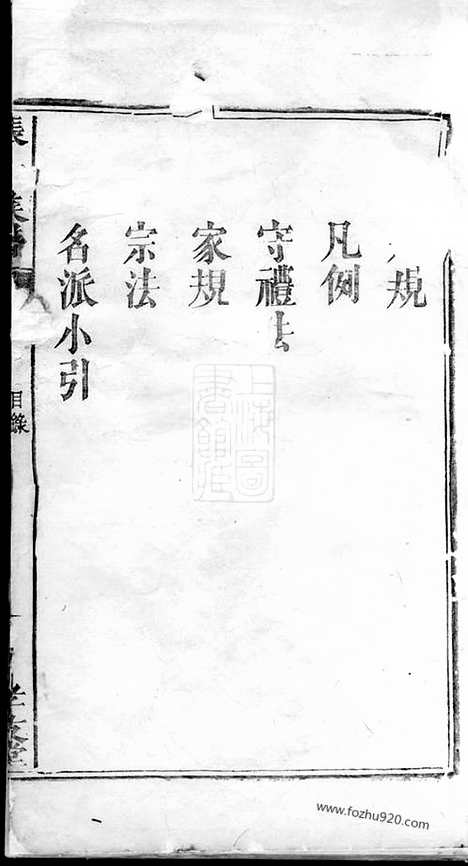 規
凡例
守禮
家規
宗法
名派小引
目錄
上海圖書館藏
www.fozhu920.com